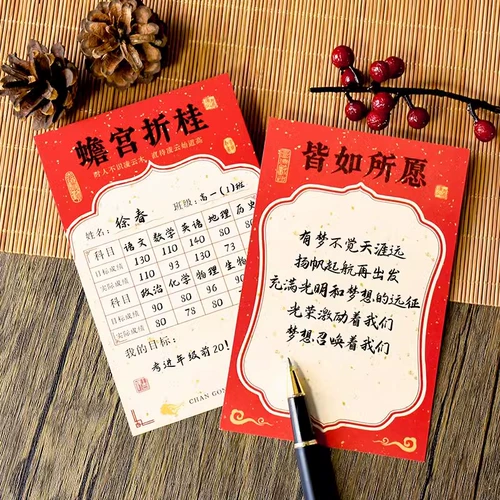 蟾宫折桂
世人不识凌云木,直待凌云始道高
姓名: 徐春 班级: 高一(1)班
科目 语文 数学 英语 地理 历史
目标成绩 130 110 140 80 80
实际成绩 110 93 130 73
科目 政治 化学 物理 生物
目标成绩 90 80 96 90
实际成绩 80 78 80
我的目标:
考进年级前20!
CHAN GON
皆如所愿
有梦不觉天涯远
扬帆起航再出发
充满光明和梦想的远征
光荣激励着我们
梦想召唤着我们